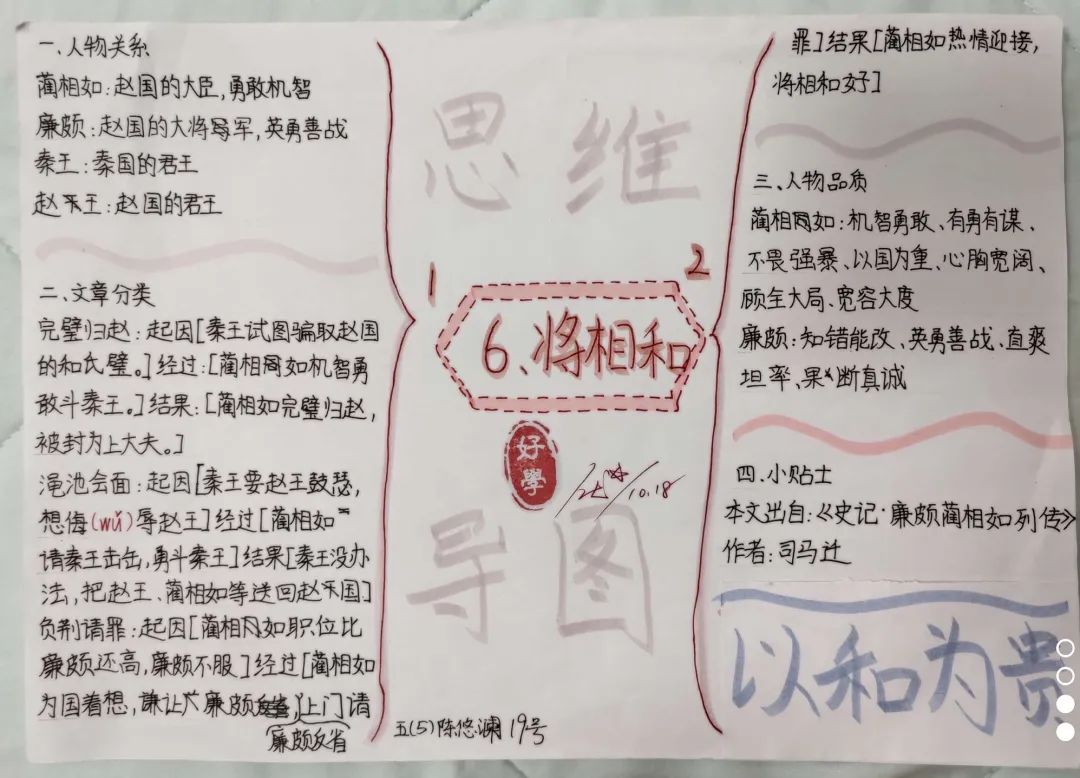 一、人物关系
蔺相如:赵国的大臣,勇敢机智
廉颇:赵国的大将军,英勇善战
秦王:秦国的君王
赵王:赵国的君王
二、文章分类
完璧归赵:起因[秦王试图骗取赵国
的和氏璧。]经过:[蔺相如机智勇
敢斗秦王。]结果:[蔺相如完璧归赵,
被封为上大夫。]
渑池会面:起因[秦王要赵王鼓瑟,
想侮(wǔ)辱赵王]经过[蔺相如
请秦王击缶,勇斗秦王]结果[秦王没办
法,把赵王、蔺相如等送回赵国]
负荆请罪:起因[蔺相如职位比
廉颇还高,廉颇不服]经过[蔺相如
为国着想,谦让廉颇,上门请
廉颇反省
思维
1
2
6、将相和
好學
10.18
导图
五(5)陈悠澜19号
罪]结果[蔺相如热情迎接,
将相和好]
三、人物品质
蔺相如:机智勇敢、有勇有谋、
不畏强暴、以国为重、心胸宽阔、
顾全大局、宽容大度
廉颇:知错能改、英勇善战、直爽
坦率、果断真诚
四、小贴士
本文出自:《史记·廉颇蔺相如列传》
作者:司马迁
以和为贵